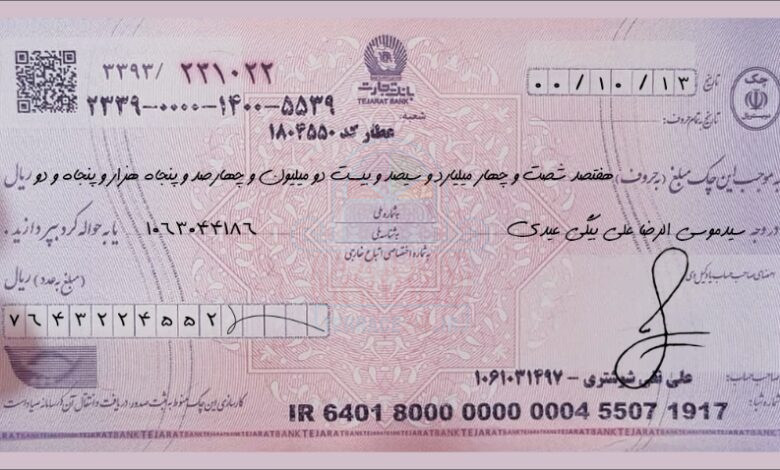 ۳۳۹۳/ ۲۲۱۰۲۲
۲۳۳۹-۰۰۰۰-۱۴۰۰-۵۵۳۹
بانک تجارت
TEJARAT BANK
شعبه:
عطار کد ۱۸۰۴۵۵۰
تاریخ ۰۰/۱۰/۱۳
تاریخ به تمام حروف:
چک
به موجب این چک مبلغ (به حروف) هفتصد شصت و چهار میلیارد و سیصد و بیست دو میلیون و چهارصد و پنجاه هزار و پنجاه و دو ریال
در وجه سیدموسی الرضا علی بیگی عیدی ۱۰۶۳۰۴۴۱۸۶ یا به حواله کرد بپردازید.
به شماره ملی
به شناسه ملی
به شماره اختصاصی اتباع خارجی
مبلغ (به عدد) ریال
۷۶۴۳۲۲۴۵۵۲
امضای صاحب حساب یا وکیل/
صاحب حساب: علی نقی شوشتری - ۱۰۶۱۰۳۱۴۹۷
کارسازی این چک منوط به ثبت صدور، دریافت و انتقال آن در سامانه صیاد است
شماره شبا: IR 6401 8000 0000 0004 5507 1917
BANKTEJARATBANKTEJARATBANKTEJARATBANK